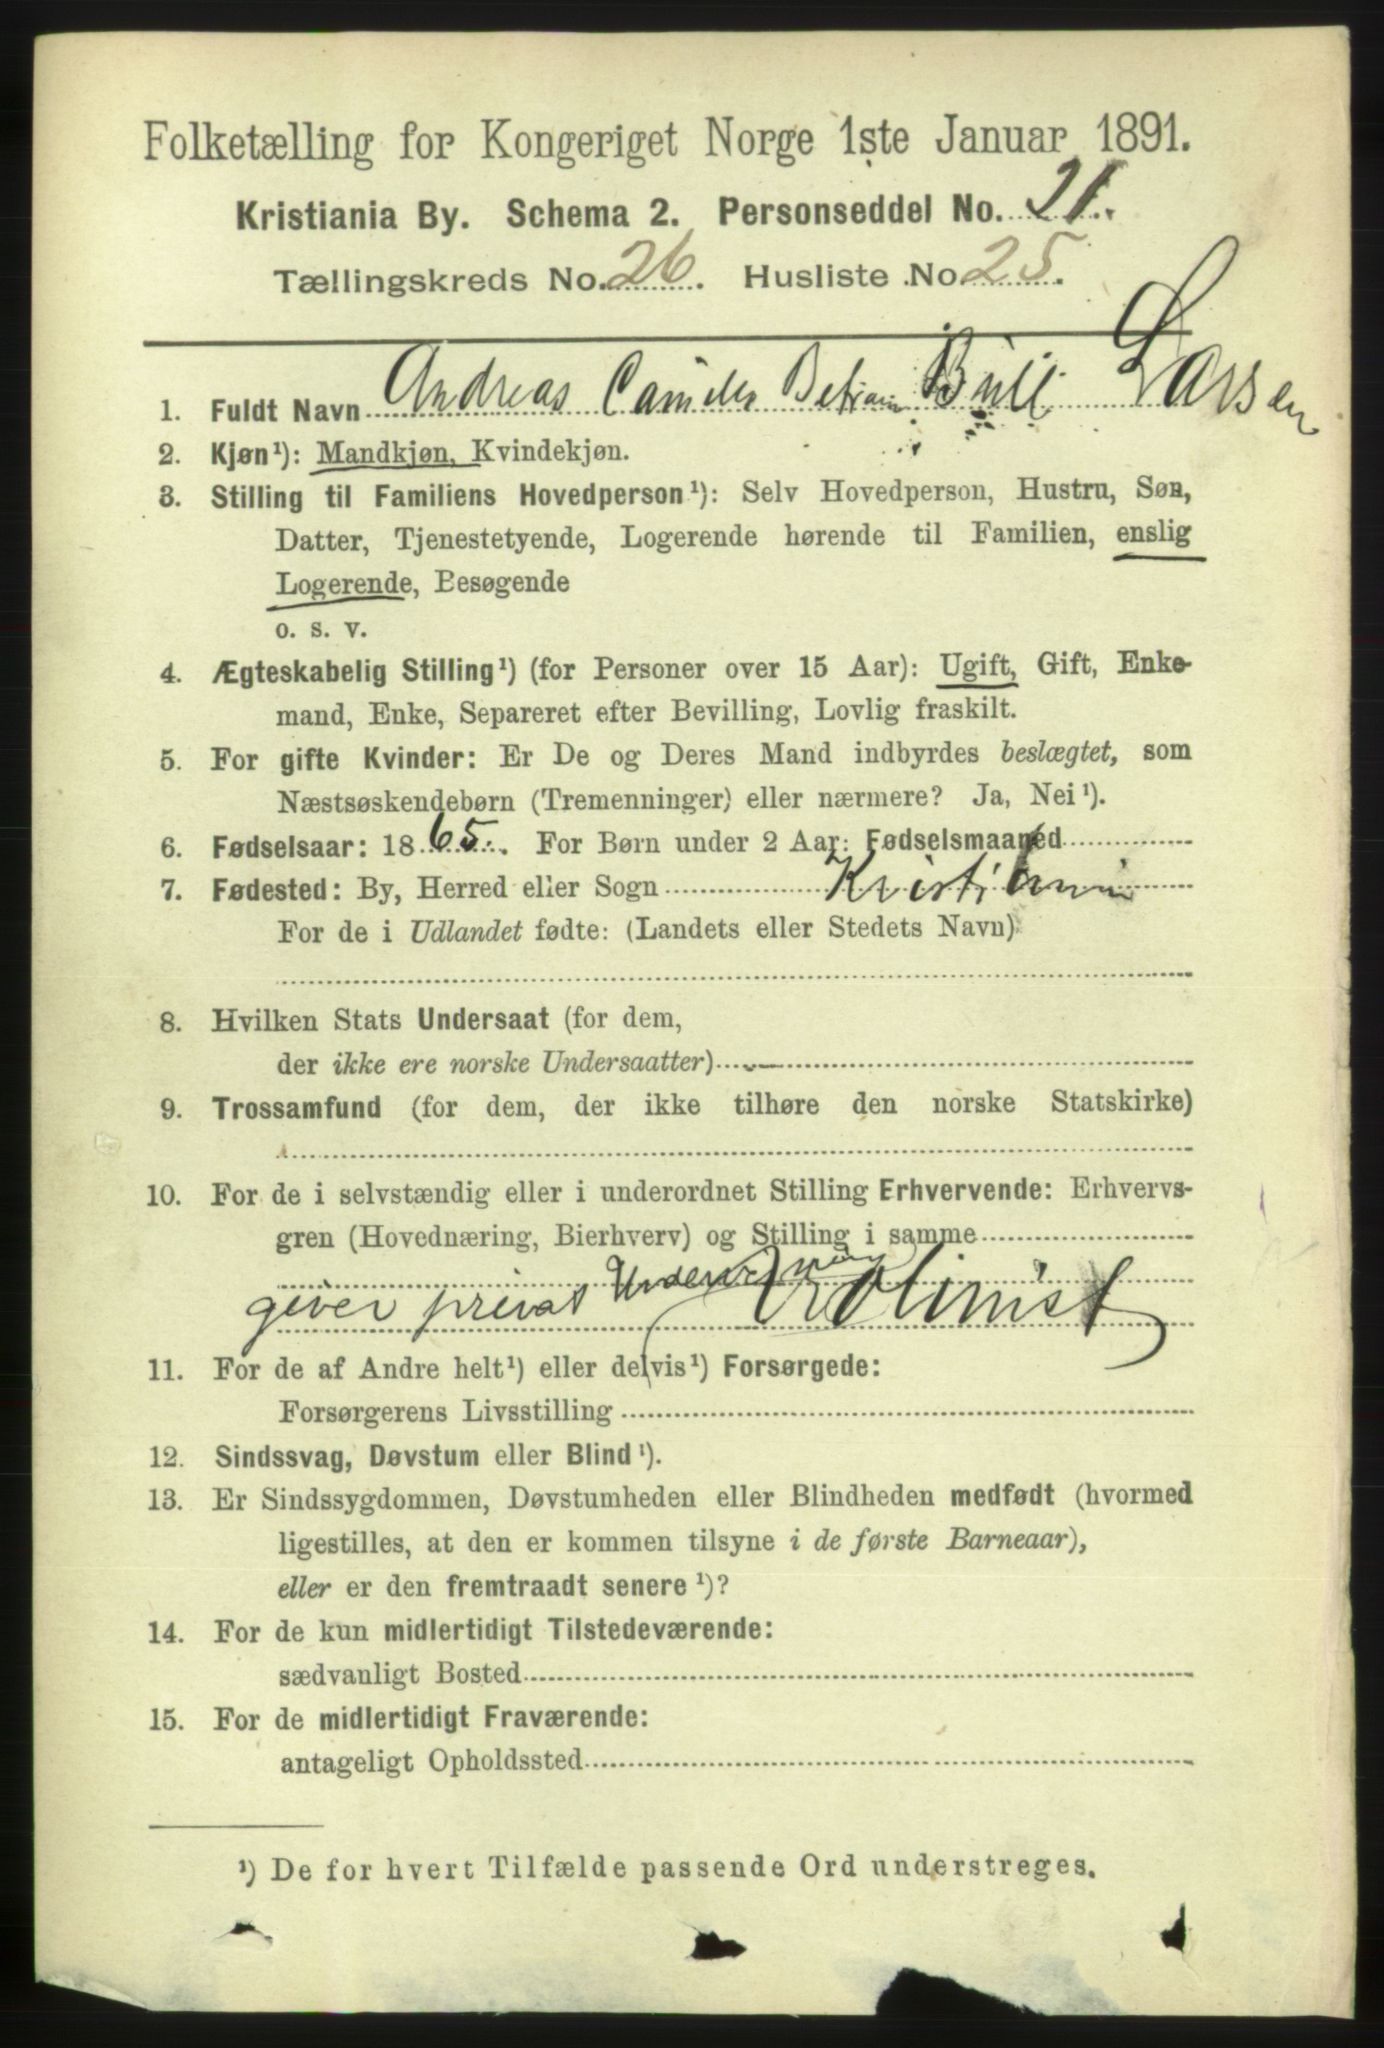 Folketælling for Kongeriget Norge 1ste Januar 1891.
Kristiania By. Schema 2. Personseddel No. 21.
Tællingskreds No. 26. Husliste No 25.
1. Fuldt Navn Andreas Camillo Büll Larsen
2. Kjøn¹): Mandkjøn, Kvindekjøn.
3. Stilling til Familiens Hovedperson¹): Selv Hovedperson, Hustru, Søn,
Datter, Tjenestetyende, Logerende hørende til Familien, enslig
Logerende, Besøgende
o. s. v.
4. Ægteskabelig Stilling¹) (for Personer over 15 Aar): Ugift, Gift, Enke-
mand, Enke, Separeret efter Bevilling, Lovlig fraskilt.
5. For gifte Kvinder: Er De og Deres Mand indbyrdes beslægtet, som
Næstsøskendebørn (Tremenninger) eller nærmere? Ja, Nei¹).
6. Fødselsaar: 1865. For Børn under 2 Aar: Fødselsmaaned
7. Fødested: By, Herred eller Sogn Kristiania
For de i Udlandet fødte: (Landets eller Stedets Navn)
8. Hvilken Stats Undersaat (for dem,
der ikke ere norske Undersaatter)
9. Trossamfund (for dem, der ikke tilhøre den norske Statskirke)
10. For de i selvstændig eller i underordnet Stilling Erhvervende: Erhvervs-
gren (Hovednæring, Bierhverv) og Stilling i samme
giver privat Undervisning Violinist
11. For de af Andre helt¹) eller delvis¹) Forsørgede:
Forsørgerens Livsstilling
12. Sindssvag, Døvstum eller Blind¹).
13. Er Sindssygdommen, Døvstumheden eller Blindheden medfødt (hvormed
ligestilles, at den er kommen tilsyne i de første Barneaar),
eller er den fremtraadt senere¹)?
14. For de kun midlertidigt Tilstedeværende:
sædvanligt Bosted
15. For de midlertidigt Fraværende:
antageligt Opholdssted
¹) De for hvert Tilfælde passende Ord understreges.